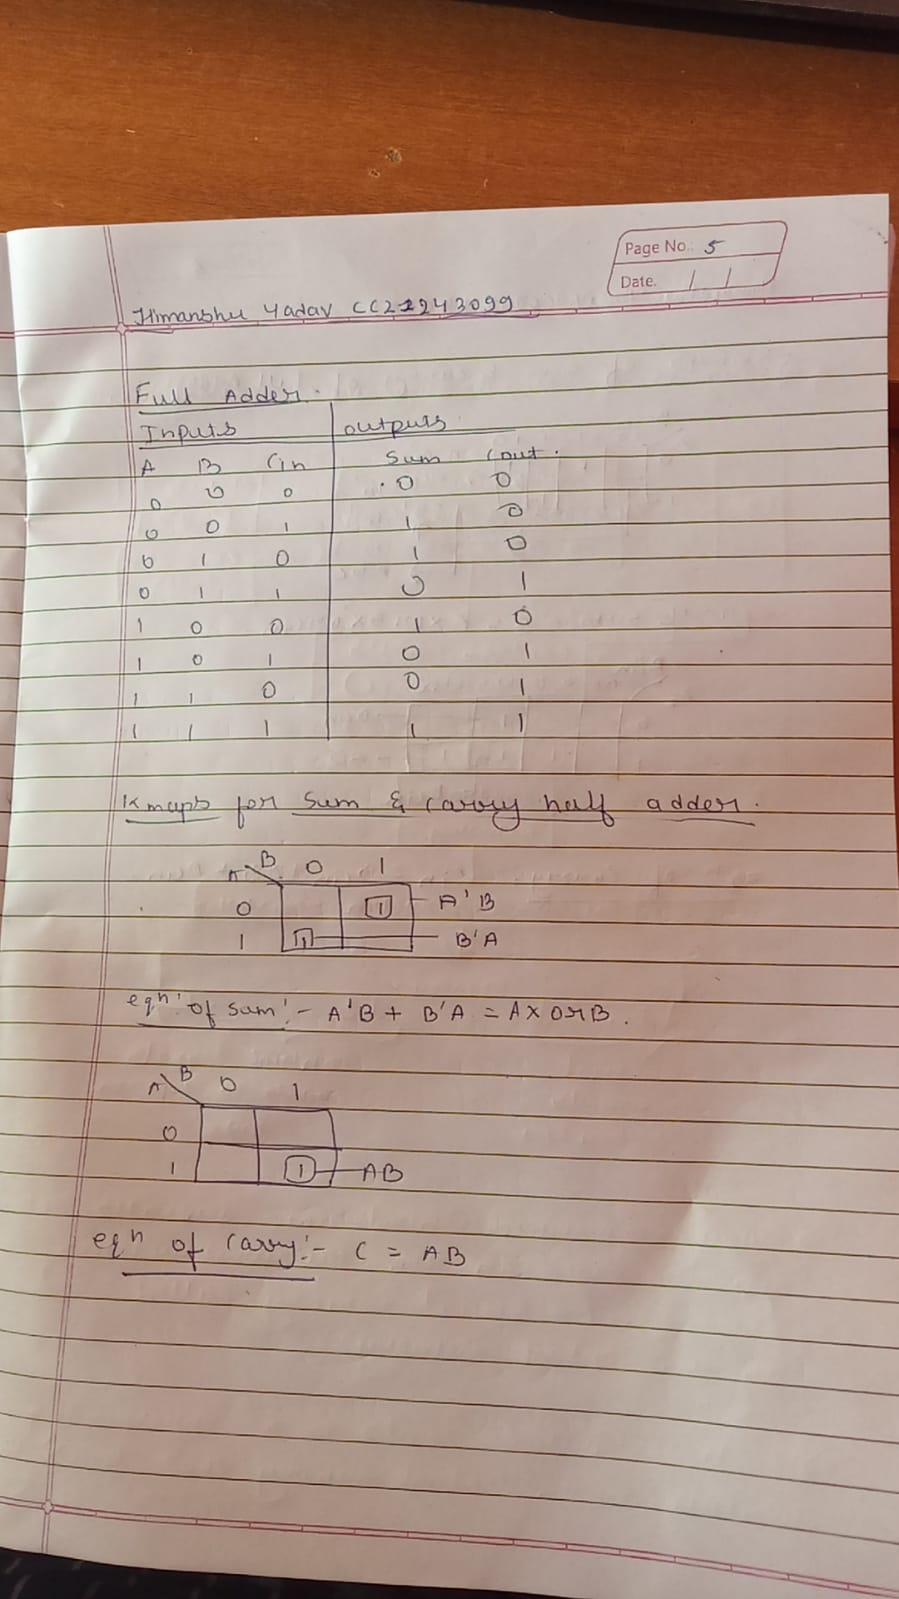 Page No.: 5
Date. / /
Himanshu Yadav CC22243099
Full Adder.
Inputs outputs
A B Cin Sum Cout.
0 0 0 0 0
0 0 1 1 0
0 1 0 1 0
0 1 1 0 1
1 0 0 1 0
1 0 1 0 1
1 1 0 0 1
1 1 1 1 1
K maps for sum & carry half adder.
A B 0 1
0 1 A'B
1 1 B'A
eqn of sum:- A'B + B'A = A XOR B.
A B 0 1
0
1 1 AB
eqn of carry:- C = AB